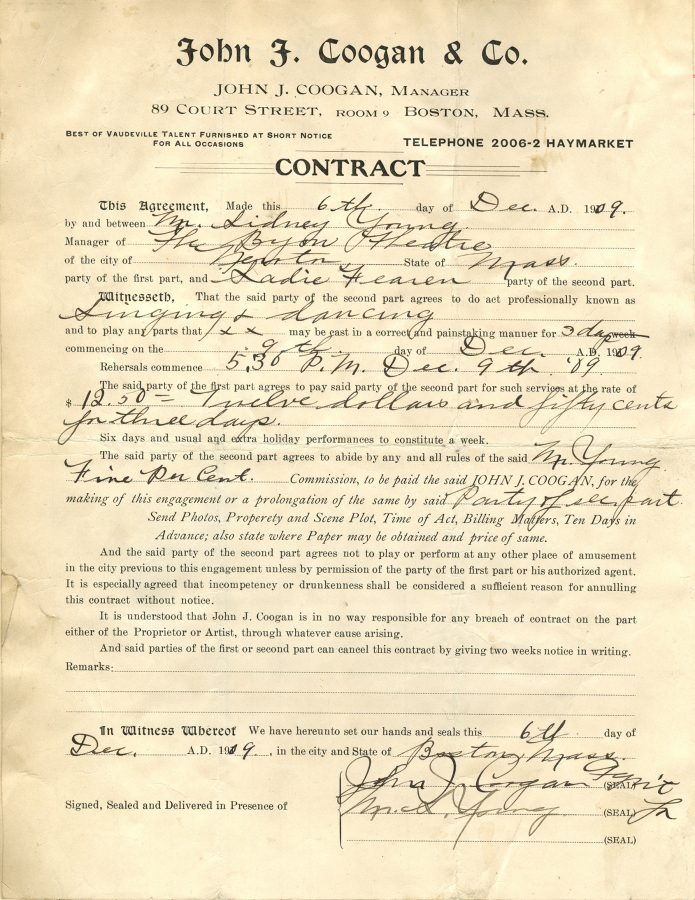 John J. Coogan & Co.
JOHN J. COOGAN, MANAGER
89 COURT STREET, ROOM 9 BOSTON, MASS.
BEST OF VAUDEVILLE TALENT FURNISHED AT SHORT NOTICE
FOR ALL OCCASIONS
TELEPHONE 2006-2 HAYMARKET
CONTRACT
This Agreement, Made this 6th day of Dec. A.D. 1909.
by and between Mr. Sidney Young
Manager of The Theatre
of the city of State of Mass.
party of the first part, and Sadie Fearen party of the second part.
Witnesseth, That the said party of the second part agrees to do act professionally known as
Singing & dancing
and to play any parts that / x x may be cast in a correct and painstaking manner for 3 days week
commencing on the 9th day of Dec. A.D. 1909.
Rehersals commence 5,30 P.M. Dec. 9th '09
The said party of the first part agrees to pay said party of the second part for such services at the rate of
$ 12.50 = Twelve dollars and fifty cents
for three days.
Six days and usual and extra holiday performances to constitute a week.
The said party of the second part agrees to abide by any and all rules of the said Mr. Young
Five Per Cent. Commission, to be paid the said JOHN J. COOGAN, for the
making of this engagement or a prolongation of the same by said Party of sec. part.
Send Photos, Properety and Scene Plot, Time of Act, Billing Matters, Ten Days in
Advance; also state where Paper may be obtained and price of same.
And the said party of the second part agrees not to play or perform at any other place of amusement
in the city previous to this engagement unless by permission of the party of the first part or his authorized agent.
It is especially agreed that incompetency or drunkenness shall be considered a sufficient reason for annulling
this contract without notice.
It is understood that John J. Coogan is in no way responsible for any breach of contract on the part
either of the Proprietor or Artist, through whatever cause arising.
And said parties of the first or second part can cancel this contract by giving two weeks notice in writing.
Remarks:
In Witness Whereof We have hereunto set our hands and seals this 6th day of
Dec. A.D. 1909, in the city and State of Boston, Mass.
John J. Coogan (SEAL)
Signed, Sealed and Delivered in Presence of
Mr. S. Young (SEAL)
(SEAL)